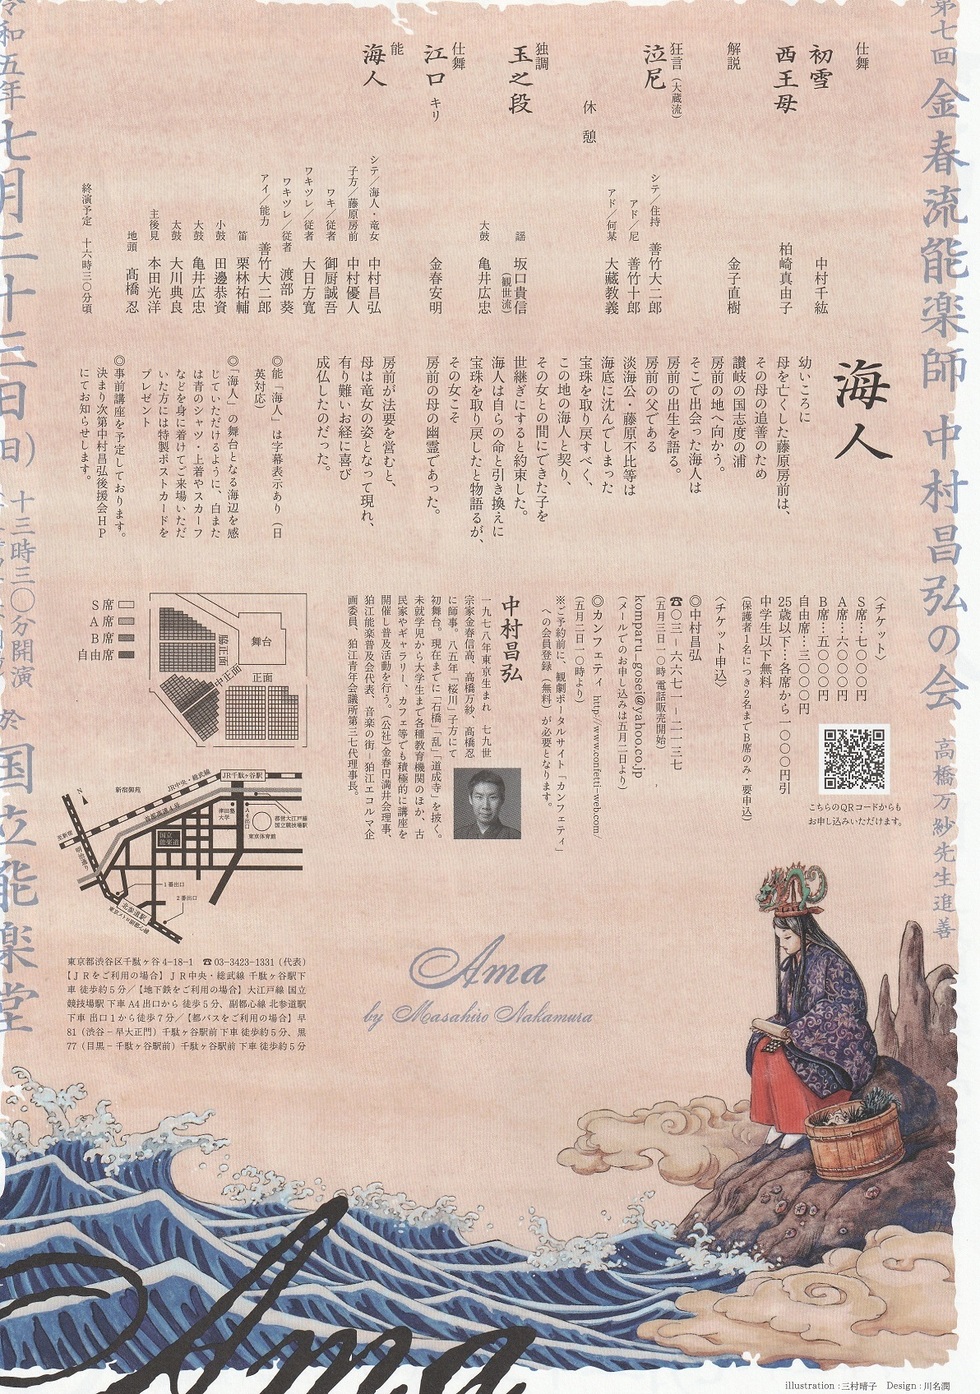 第七回 金春流能楽師 中村昌弘の会 高橋万紗先生追善
仕舞
初雪 中村千紘
西王母 柏崎真由子
解説 金子直樹
狂言(大蔵流)
泣尼
シテ/住持 善竹大二郎
アド/尼 善竹十郎
アド/何某 大蔵教義
休憩
独調
玉之段
謡 坂口貴信
(観世流)
大鼓 亀井広忠
仕舞
江口 キリ 金春安明
能
海人
シテ/海人・竜女 中村昌弘
子方/藤原房前 中村優人
ワキ/従者 御厨誠吾
ワキツレ/従者 大日方寛
ワキツレ/従者 渡部葵
アイ/能力 善竹大二郎
笛 栗林祐輔
小鼓 田邊恭資
大鼓 亀井広忠
太鼓 大川典良
主後見 本田光洋
地頭 髙橋忍
終演予定 十六時三〇分頃
海人
幼いころに
母を亡くした藤原房前は、
その母の追善のため
讃岐の国志度の浦
房前の地へ向かう。
そこで出会った海人は
房前の出生を語る。
房前の父である
淡海公・藤原不比等は
海底に沈んでしまった
宝珠を取り戻すべく、
この地の海人と契り、
その女との間にできた子を
世継ぎにすると約束した。
海人は自らの命と引き換えに
宝珠を取り戻したと物語るが、
その女こそ
房前の母の幽霊であった。
房前が法要を営むと、
母は竜女の姿となって現れ、
有り難いお経に喜び
成仏したのだった。
◎能「海人」は字幕表示あり(日
英対応)
◎「海人」の舞台となる海辺を感
じていただけるように、白また
は青のシャツ・上着やスカーフ
などを身に着けてご来場いただ
いた方には特製ポストカードを
プレゼント
◎事前講座を予定しております。
決まり次第中村昌弘後援会HP
にてお知らせします。
〈チケット〉
S席…七〇〇〇円
A席…六〇〇〇円
B席…五〇〇〇円
自由席…三〇〇〇円
25歳以下…各席から一〇〇〇円引
中学生以下無料
(保護者1名につき2名までB席のみ・要申込)
〈チケット申込〉
◎中村昌弘
☎〇三-六六七一-二一三七
(五月三日一〇時電話販売開始)
komparu_gosei@yahoo.co.jp
(メールでのお申し込みは五月二日より)
◎カンフェティ http://www.confetti-web.com/
(五月二日一〇時より)
※ご予約前に、観劇ポータルサイト「カンフェティ」
への会員登録(無料)が必要となります。
こちらのQRコードからも
お申し込みいただけます。
中村昌弘
一九七八年東京生まれ 七九世
宗家金春信高、高橋万紗、高橋忍
に師事。八五年「桜川」子方にて
初舞台。現在までに「石橋」「乱」「道成寺」を披く。
未就学児から大学生まで各種教育機関のほか、古
民家やギャラリー、カフェ等でも積極的に講座を
開催し普及活動を行う。(公社)金春円満井会理事、
狛江能楽普及会代表、音楽の街-狛江エコルマ企
画委員、狛江青年会議所第三七代理事長。
舞台
脇正面
中正面
正面
S席
A席
B席
自由席
N
新宿御苑
JR中央・総武線
JR千駄ヶ谷駅
首都高速4号
至新宿
明治通り
津田塾
大学
A4出口
都営大江戸線
国立競技場駅
東京体育館
国立
能楽堂
1番出口
2番出口
北参道駅
東京メトロ副都心線
東京都渋谷区千駄ヶ谷4-18-1 ☎03-3423-1331(代表)
【JRをご利用の場合】JR中央・総武線 千駄ヶ谷駅下
車 徒歩約5分/【地下鉄をご利用の場合】大江戸線 国立
競技場駅 下車 A4出口から 徒歩5分、副都心線 北参道駅
下車 出口1から徒歩7分/【都バスをご利用の場合】早
81(渋谷-早大正門)千駄ヶ谷駅前 下車 徒歩約5分、黒
77(目黒-千駄ヶ谷駅前)千駄ヶ谷駅前 下車 徒歩約5分
令和五年 七月二十三日(日) 十三時三〇分開演
於 国立能楽堂
Ama
by Masahiro Nakamura
Ama
illustration:三村晴子 Design:川名潤